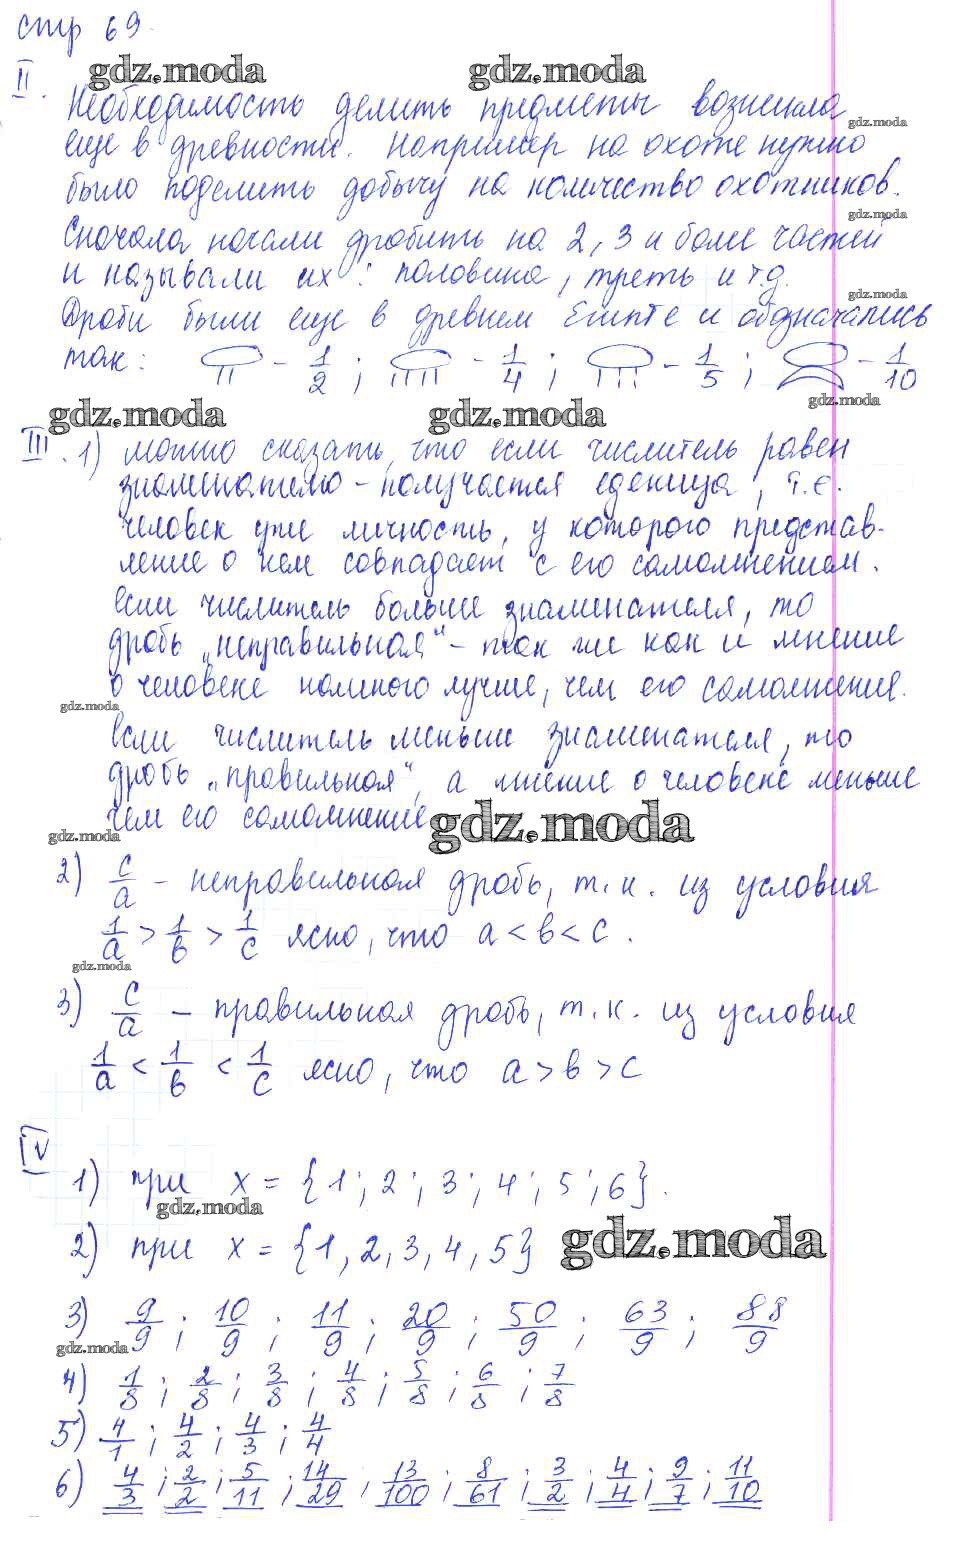 стр 69
gdz.moda gdz.moda
II. Необходимость делить предметы возникла
gdz.moda
еще в древности. Например на охоте нужно
было поделить добычу на количество охотников.
gdz.moda
Сначала начали дробить на 2, 3 и более частей
и называли их: половина, треть и т.д.
gdz.moda
Дроби были еще в древнем Египте и обозначались
так: - 1/2 ; - 1/4 ; - 1/5 ; - 1/10
gdz.moda
gdz.moda gdz.moda
III. 1) можно сказать, что если числитель равен
знаменателю - получается еденица, т.е.
человек уже личность, у которого представ-
ление о нем совпадает с его самомнением.
если числитель больше знаменателя, то
дробь „неправильная" - так же как и мнение
о человеке намного лучше, чем его самомнение.
gdz.moda
если числитель меньше знаменателя, то
дробь „правильная", а мнение о человеке меньше
чем его самомнение
gdz.moda
gdz.moda
2) c/a - неправильная дробь, т.к. из условия
1/a > 1/b > 1/c ясно, что a < b < c.
gdz.moda
3) c/a - правильная дробь, т.к. из условия
1/a < 1/b < 1/c ясно, что a > b > c
IV
1) при x = {1; 2; 3; 4; 5; 6}.
gdz.moda
2) при x = {1, 2, 3, 4, 5}
gdz.moda
3) 9/9 ; 10/9 ; 11/9 ; 20/9 ; 50/9 ; 63/9 ; 88/9
gdz.moda
4) 1/8 ; 2/8 ; 3/8 ; 4/8 ; 5/8 ; 6/8 ; 7/8
5) 4/1 ; 4/2 ; 4/3 ; 4/4
6) 4/3 ; 2/2 ; 5/11 ; 14/29 ; 13/100 ; 8/61 ; 3/2 ; 4/4 ; 9/7 ; 11/10